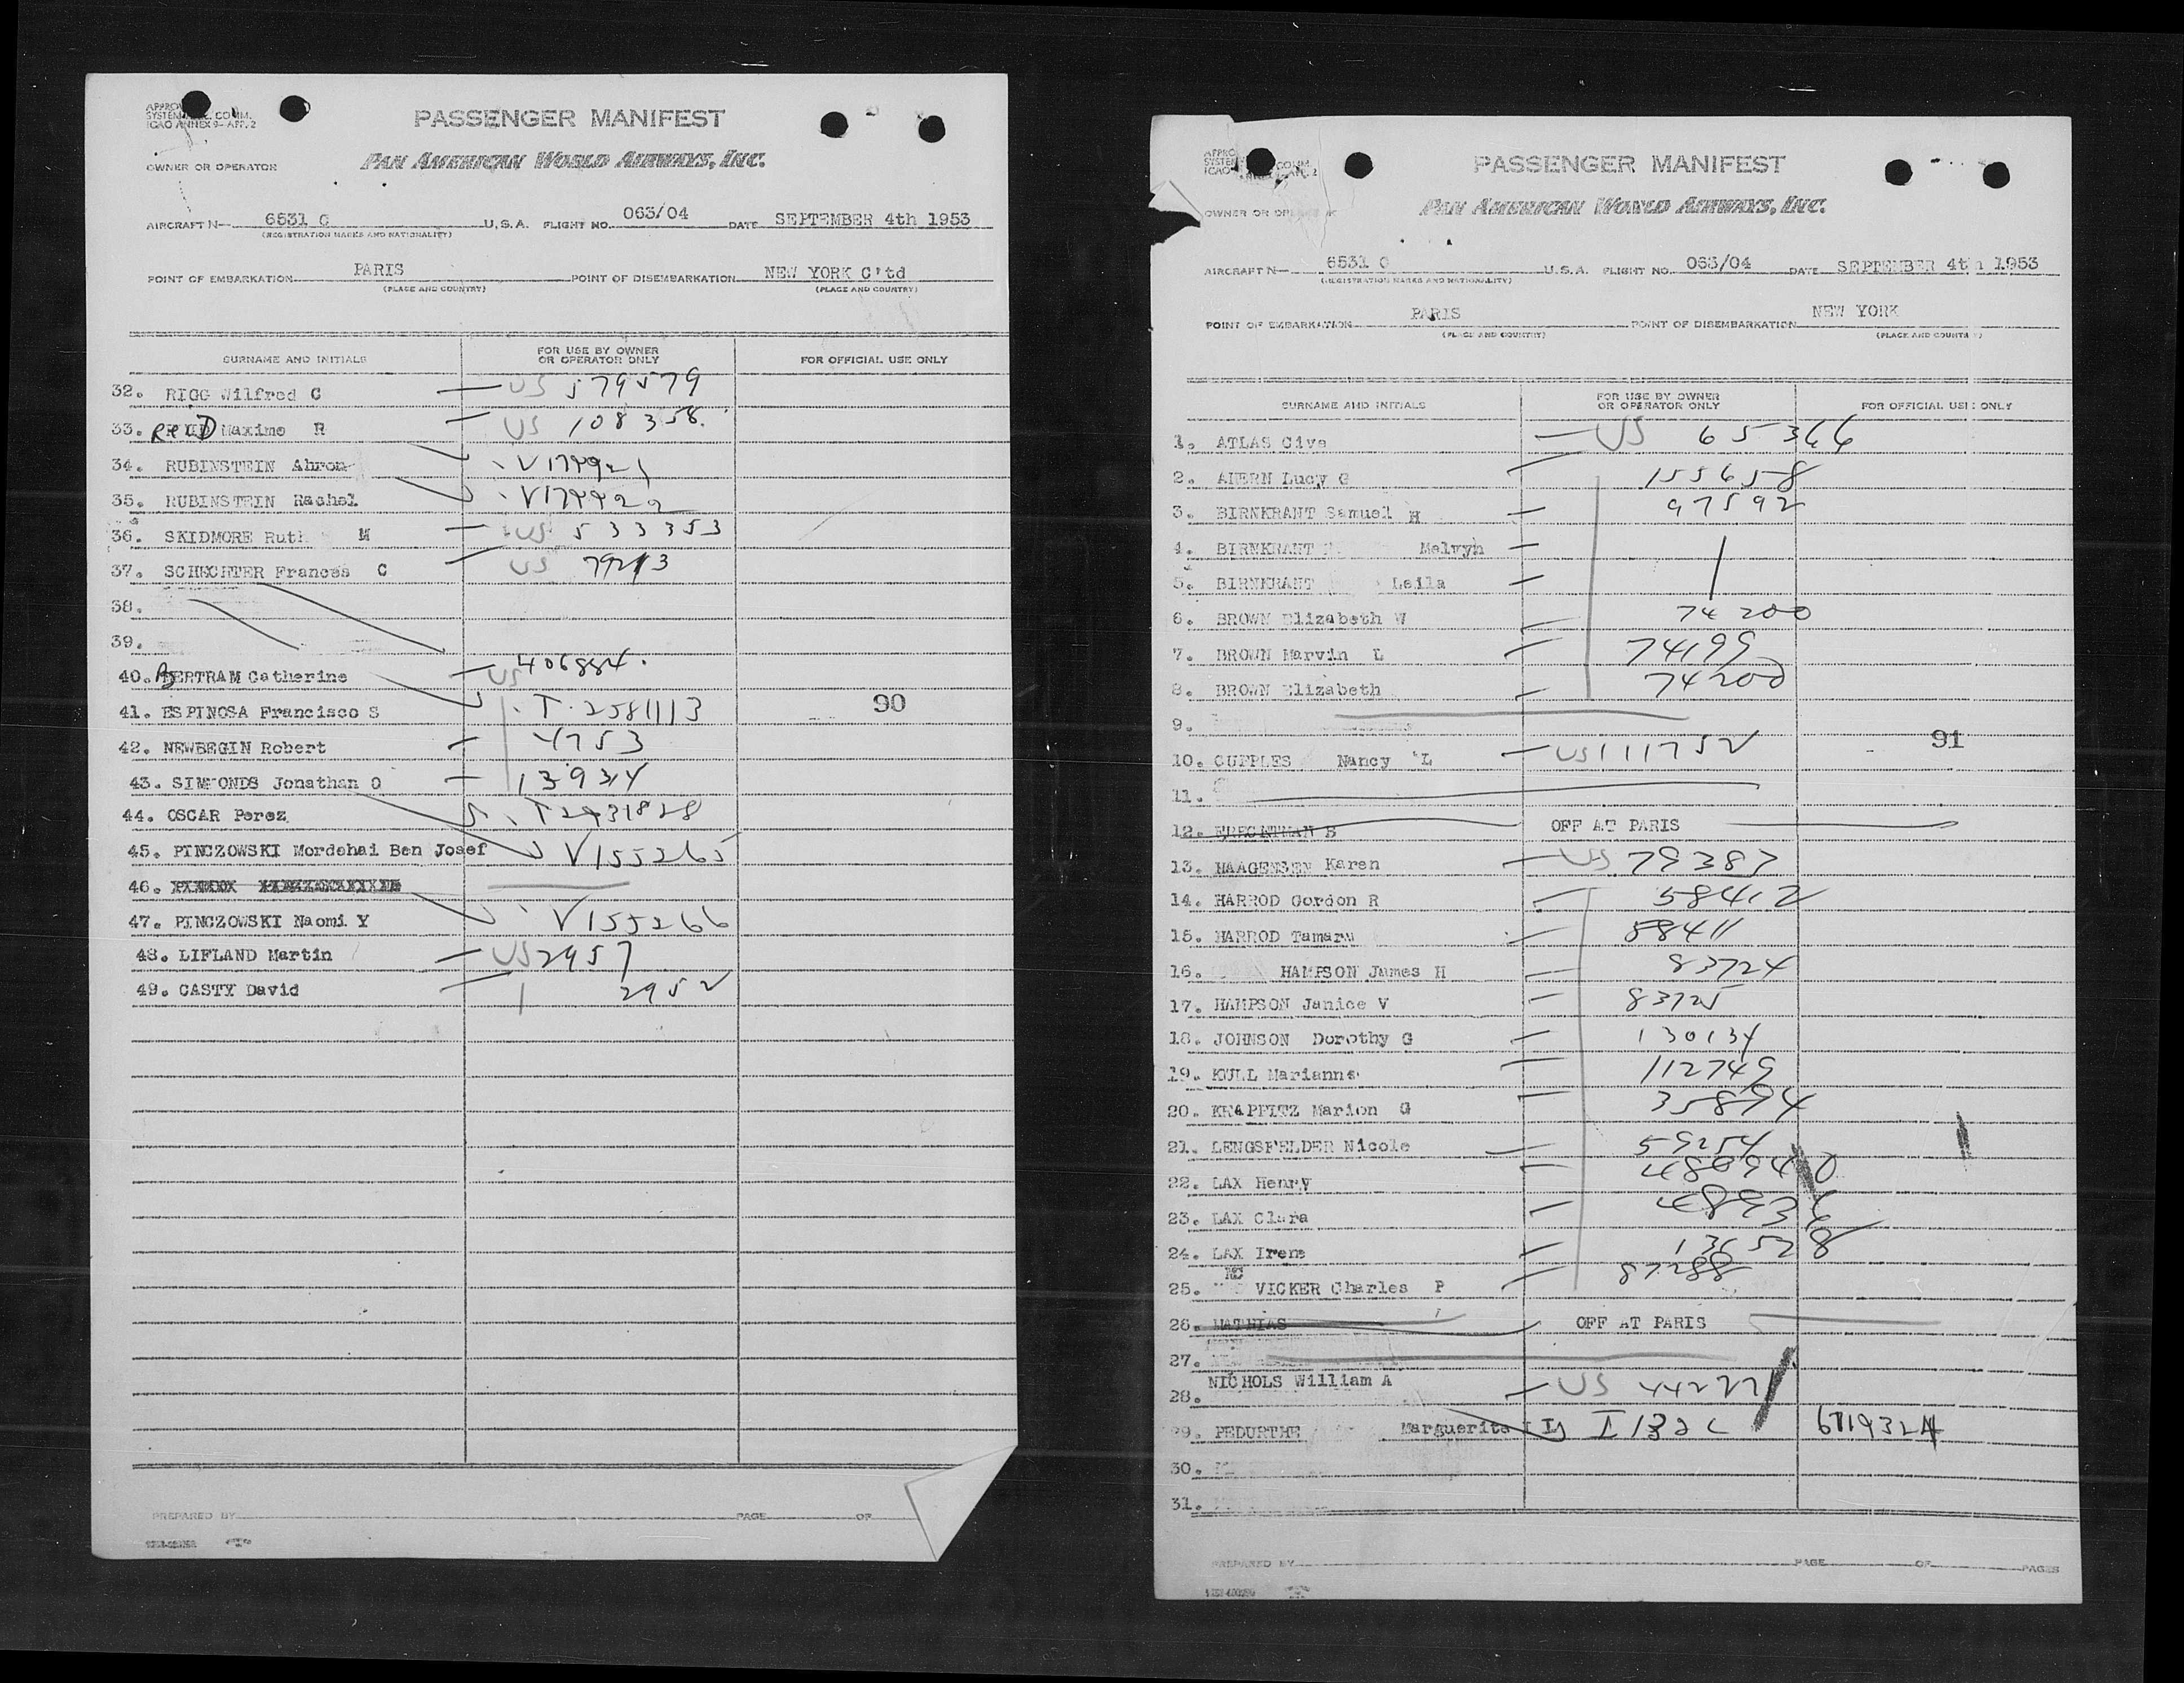 PASSENGER MANIFEST
PAN AMERICAN WORLD AIRWAYS, INC.
OWNER OR OPERATOR
AIRCRAFT N- 6531 C U.S.A. FLIGHT NO. 063/04 DATE SEPTEMBER 4th 1953
(REGISTRATION MARKS AND NATIONALITY)
POINT OF EMBARKATION PARIS POINT OF DISEMBARKATION NEW YORK C'td
(PLACE AND COUNTRY) (PLACE AND COUNTRY)
SURNAME AND INITIALS FOR USE BY OWNER OR OPERATOR ONLY FOR OFFICIAL USE ONLY
32. RIGG Wilfred C US 579579
33. Maxime R US 108358
34. RUBINSTEIN Ahron
35. RUBINSTEIN Rachel
36. SKIDMORE Ruth M US 533353
37. SCHECHTER Frances C US
38.
39.
40. BERTRAM Catherine US 406884
41. ESPINOSA Francisco S T. 2581113
90
42. NEWBEGIN Robert 4753
43. SIMMONDS Jonathan O
44. OSCAR Perez
45. PINCZOWSKI Mordehai Ben Josef V155265
46.
47. PINCZOWSKI Naomi Y V155266
48. LIFLAND Martin US 2957
49. CASTY David 2952
PREPARED BY PAGE OF
PASSENGER MANIFEST
PAN AMERICAN WORLD AIRWAYS, INC.
OWNER OR
AIRCRAFT N- 6531 C U.S.A. FLIGHT NO. 063/04 DATE SEPTEMBER 4th 1953
(REGISTRATION MARKS AND NATIONALITY)
POINT OF EMBARKATION PARIS POINT OF DISEMBARKATION NEW YORK
(PLACE AND COUNTRY) (PLACE AND COUNTRY)
SURNAME AND INITIALS FOR USE BY OWNER OR OPERATOR ONLY FOR OFFICIAL USE ONLY
1. ATLAS Civa US 65366
2. AHERN Lucy G 155658
3. BIRNKRANT Samuel H 97592
4. BIRNKRANT Melvyn
5. BIRNKRANT Leila
6. BROWN Elizabeth W 74200
7. BROWN Marvin L 74199
8. BROWN Elizabeth 74200
9.
91
10. CUPPLES Nancy L US 111752
11.
12. OFF AT PARIS
13. HAAGENSEN Karen US 79387
14. HARROD Gordon R 58412
15. HARROD Tamara 58411
16. HAMPSON James H 83724
17. HAMPSON Janice V 83725
18. JOHNSON Dorothy G 130134
19. KULL Marianne 112749
20. KRAPPITZ Marion G 35894
21. LENGSFELDER Nicole 59254
22. LAX Henry
23. LAX Clara
24. LAX Irene 136528
25. MC VICKER Charles P 87288
26. MATHIAS OFF AT PARIS
27.
28. NICHOLS William A US
29. PEDURTHE Marguerite
30.
31.
PREPARED BY PAGE OF PAGES